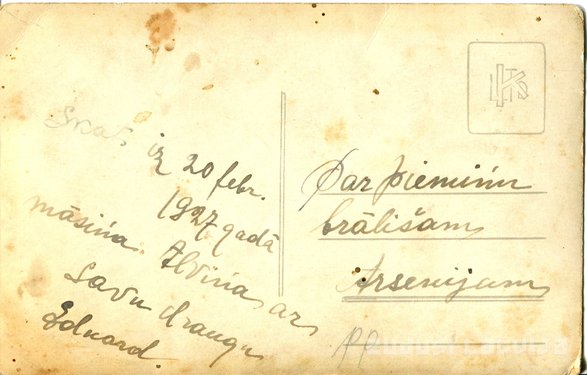 iz 20 febr.
1927 gadā
māsiņa Alvina ar
savu draugu
Eduard.
Par piemiņu
brālišam
Arsenijam